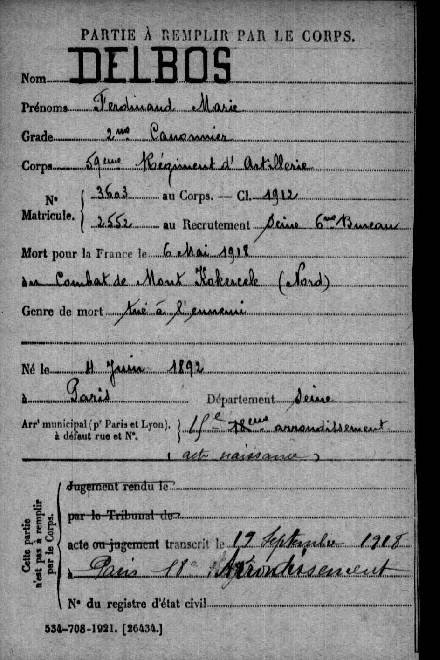 PARTIE À REMPLIR PAR LE CORPS.
Nom DELBOS
Prénoms Ferdinand Marie
Grade 2me Canonnier
Corps 59eme Régiment d'Artillerie
N° Matricule. 3603 au Corps. — Cl. 1912
2552 au Recrutement Seine 6me Bureau
Mort pour la France le 6 Mai 1918
au Combat de Mont Kokereele (Nord)
Genre de mort tué à l'ennemi
Né le 4 Juin 1892
à Paris Département Seine
Arrt municipal (pr Paris et Lyon), à défaut rue et N°. 15e 18eme arrondissement
(act naissance)
Cette partie n'est pas à remplir par le Corps.
Jugement rendu le
par le Tribunal de
acte ou jugement transcrit le 19 Septembre 1918
à Paris Arrondissement
N° du registre d'état civil
534-708-1921. [26434.]